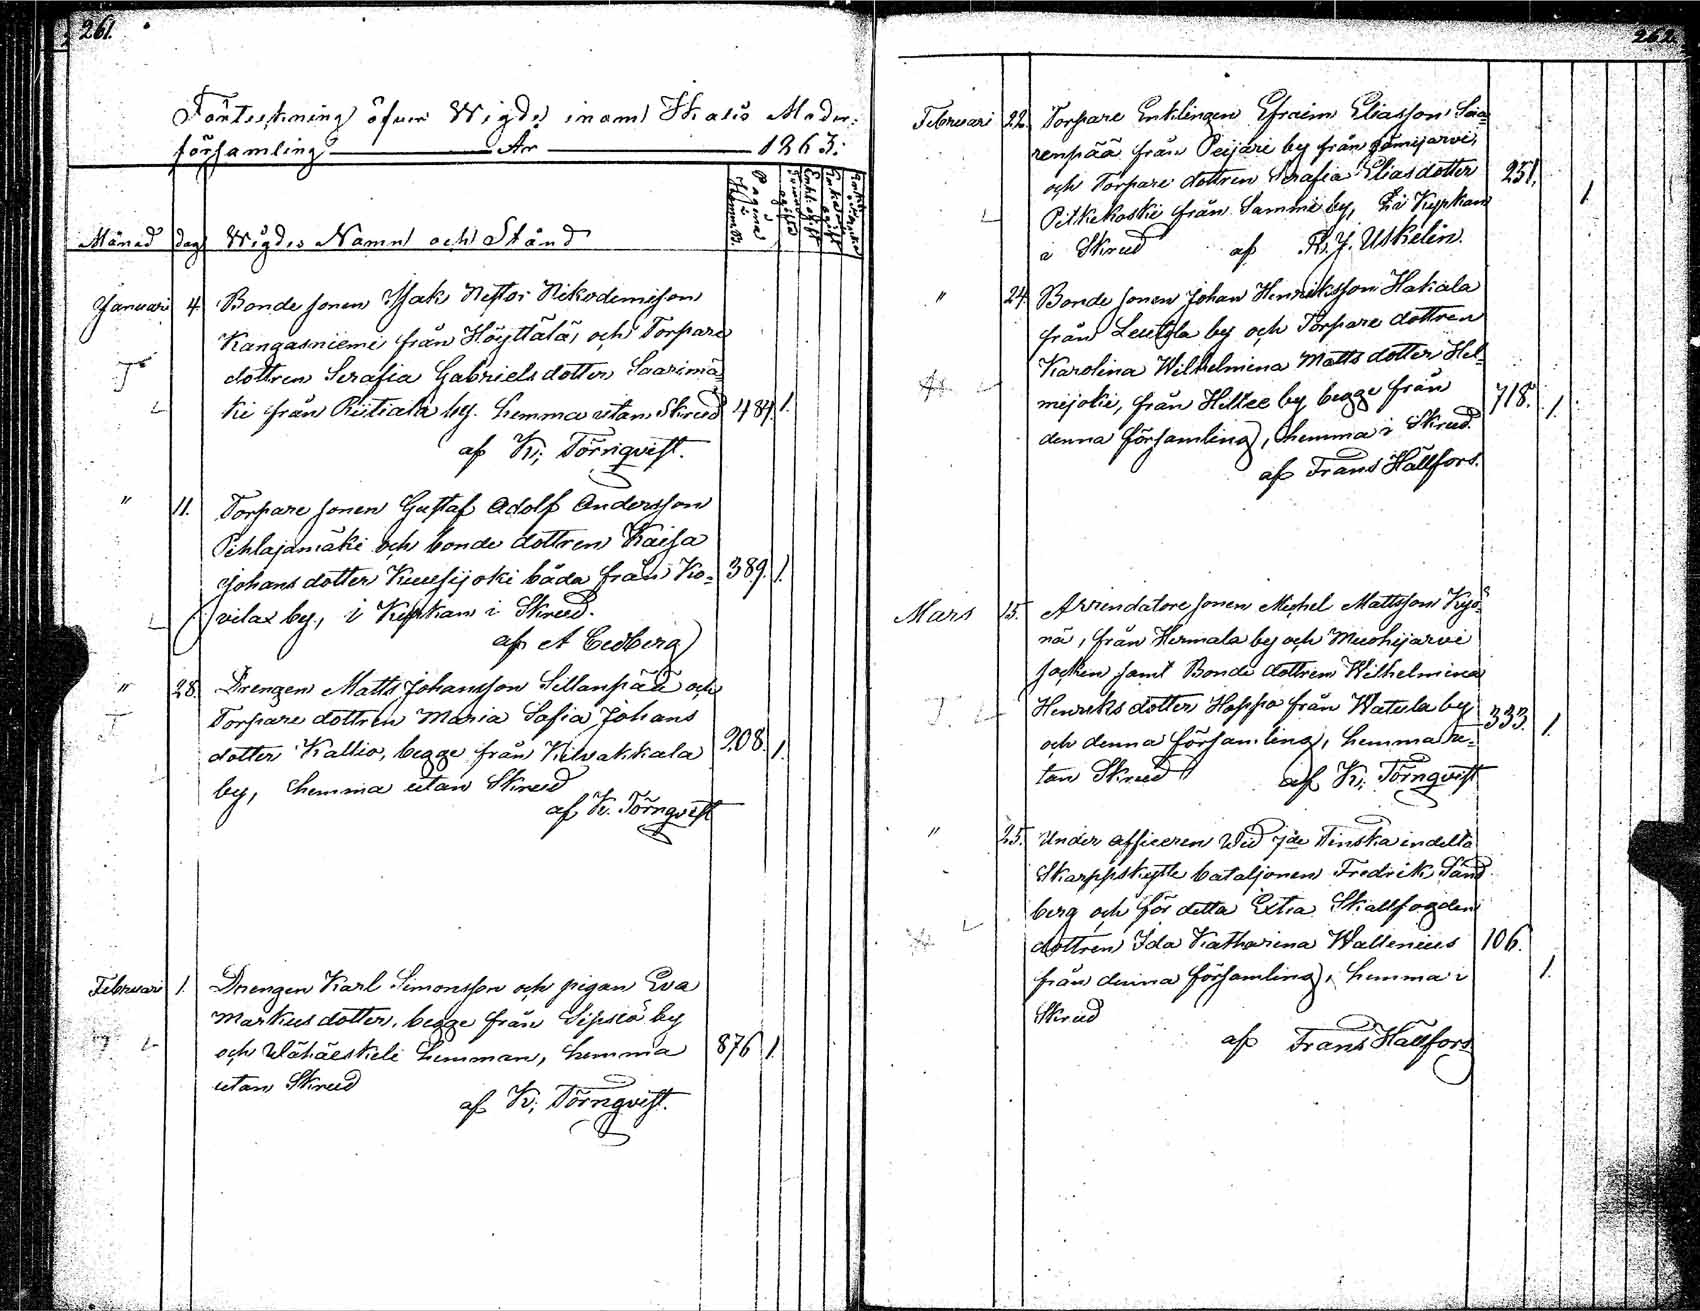 261.
Förteckning öfver Wigde inom Ikalis Moder-
församling År 1863:
Månad dag Wigdes Namn och Stånd Pagina i Kommb.
Januari 4. Bonde sonen Isak Nestor Nikodemisson
Kangasniemi från Höyttälä, och Torpare
dottren Serafia Gabriels dotter Saarimä-
ki från Riitiala by. hemma utan Skrud 484. 1.
af K; Törnqvist.
" 11. Torpare sonen Gustaf Adolf Andersson
Pihlajamäki och bonde dottren Kaisa
Johans dotter Kuusijoki båda från Ko- 389. 1.
vilax by, i Kyrkan i Skrud.
af A Cedberg
" 28. Drengen Matts Johansson Sillanpää och
Torpare dottren Maria Safia Johans
dotter Kallio, begge från Kilvakkala 208. 1.
by, hemma utan Skrud
af K. Törnqvist
Februari 1. Drengen Karl Simonsson och pigan Eva
Markus dotter, begge från Sipsiö by
och Wähäeskeli hemman, hemma 876 1.
utan Skrud
af K; Törnqvist.
262.
Februari 22. Torpare Enklingen Efraim Eliasson Saa-
renpää från Peijari by från Jämijärvi,
och Torpare dottren Serafia Elias dotter 251. 1
Pitkekoski från Samma by, i Kyrkan
i Skrud af F. J. Uskelin.
" 24. Bonde sonen Johan Henriksson Hakala
från Leutola by och Torpare dottren
Karolina Wilhelmina Matts dotter Hel-
mijoki, från Heltee by, begge från 718. 1.
denna församling, hemma i Skrud.
af Frans Hällfors.
Mars 15. Arrendatore sonen Michel Mattsson Kyö-
nä, från Hermala by och Muohijärvi
socken samt Bonde dottren Wilhelmina
Henriks dotter Hoppo från Watula by 333. 1.
och denna församling, hemma u-
tan Skrud af K; Törnqvist
" 25. Under officeren wid 7de Finska indelta
Skarppskytte bataljonen Fredrik Sand
berg och för detta Extra Skallfogden
dottren Ida Katharina Wallenius 106.
från denna församling, hemma i 1.
Skrud
af Frans Hällfors